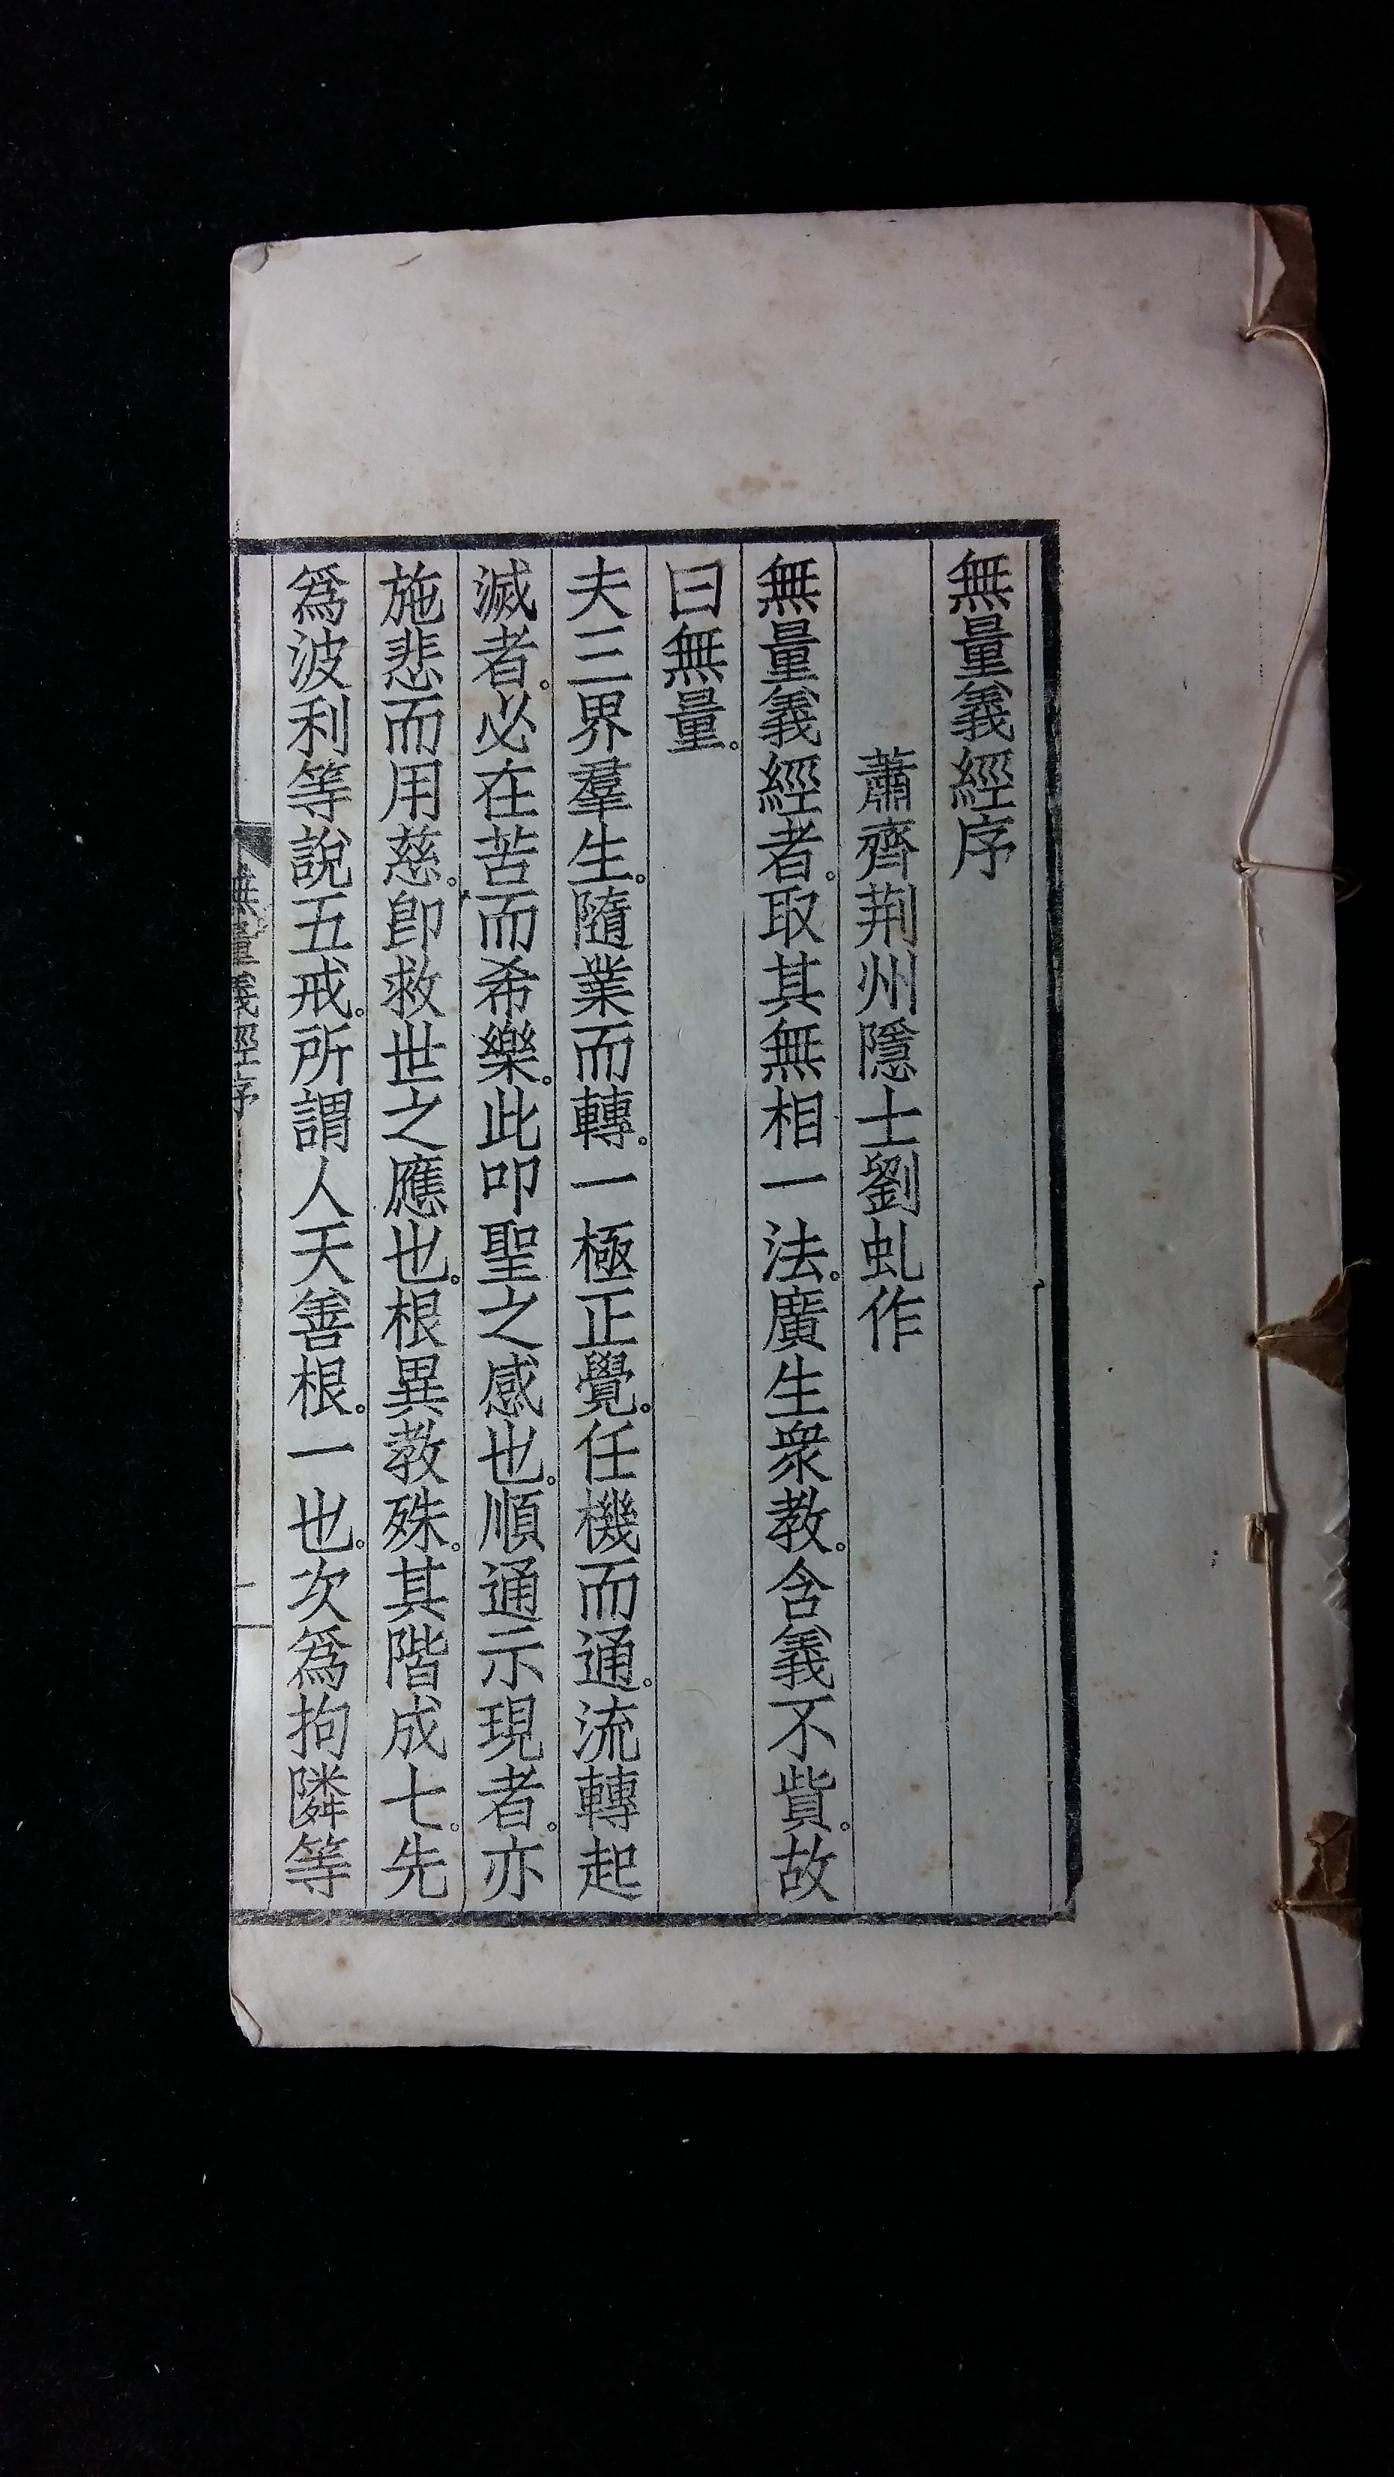 無量義經序
蕭齊荆州隱士劉虬作
無量義經者。取其無相一法。廣生衆教。含義不貲。故
曰無量。
夫三界羣生。隨業而轉。一極正覺。任機而通。流轉起
滅者。必在苦而希樂。此叩聖之感也。順通示現者。亦
施悲而用慈。卽救世之應也。根異教殊。其階成七。先
爲波利等說五戒。所謂人天善根。一也。次爲拘隣等
無量義經序
一